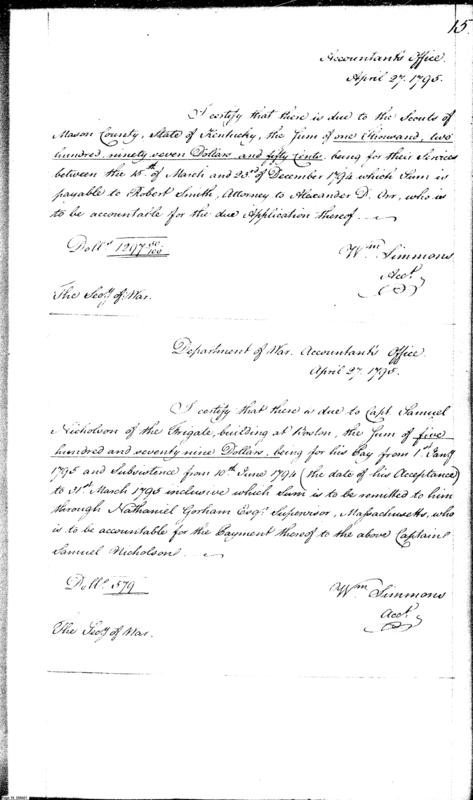 15
Accountant's Office
April 27. 1795.
I certify that there is due to the Scouts of
Mason County, State of Kentucky, the Sum of one thousand, two
hundred, ninety seven Dollars and fifty Cents, being for their Services
between the 15th of March and 25th of December 1794 which Sum is
payable to Robert Smith, Attorney to Alexander D. Orr, who is
to be accountable for the due Application thereof.
Dolls 1297 50/100
Wm Simmons
Acct.
The Secy of War.
Department of War. Accountant's Office.
April 27. 1795.
I certify that there is due to Capt. Samuel
Nicholson of the Frigate, building at Boston, the Sum of five
hundred and seventy nine Dollars, being for his Pay from 1st Jany
1795 and Subsistence from 10th June 1794 (the date of his Acceptance)
to 31st March 1795 inclusive which Sum is to be remitted to him
through Nathaniel Gorham Esqr. Supervisor, Massachusetts, who
is to be accountable for the Payment thereof to the above Captain
Samuel Nicholson
Dolls 579
Wm Simmons
Acct.
The Secy of War.